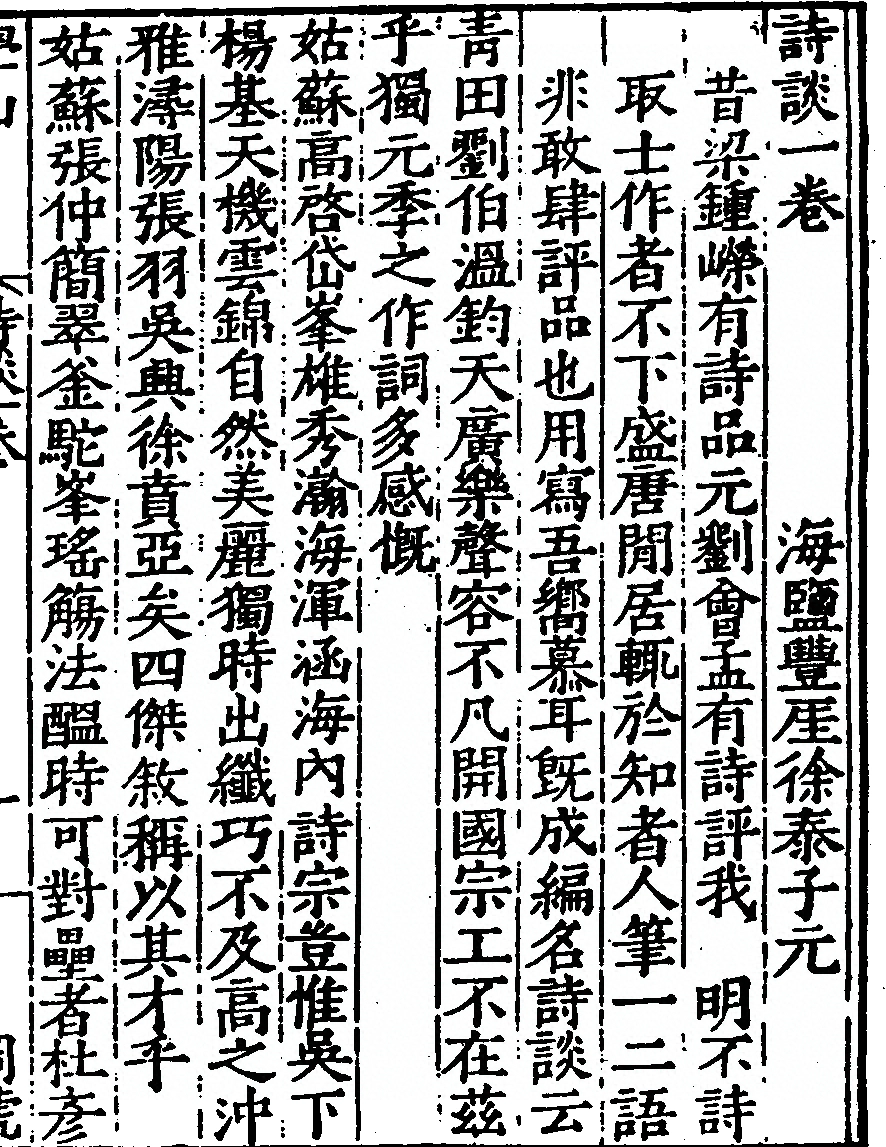 詩談一卷 海鹽豐厓徐泰子元
昔梁鍾嶸有詩品元劉會孟有詩評我 明不詩
取士作者不下盛唐閒居輒於知者人筆一二語
非敢肆評品也用寫吾嚮慕耳既成編名詩談云
靑田劉伯溫鈞天廣樂聲容不凡開國宗工不在茲
乎獨元季之作詞多感慨
姑蘇高啓岱峯雄秀瀚海渾涵海內詩宗豈惟吳下
楊基天機雲錦自然美麗獨時出纖巧不及高之沖
雅潯陽張羽吳興徐賁亞矣四傑敘稱以其才乎
姑蘇張仲簡翠釜駝峯瑤觴法醞時可對壘者杜彥